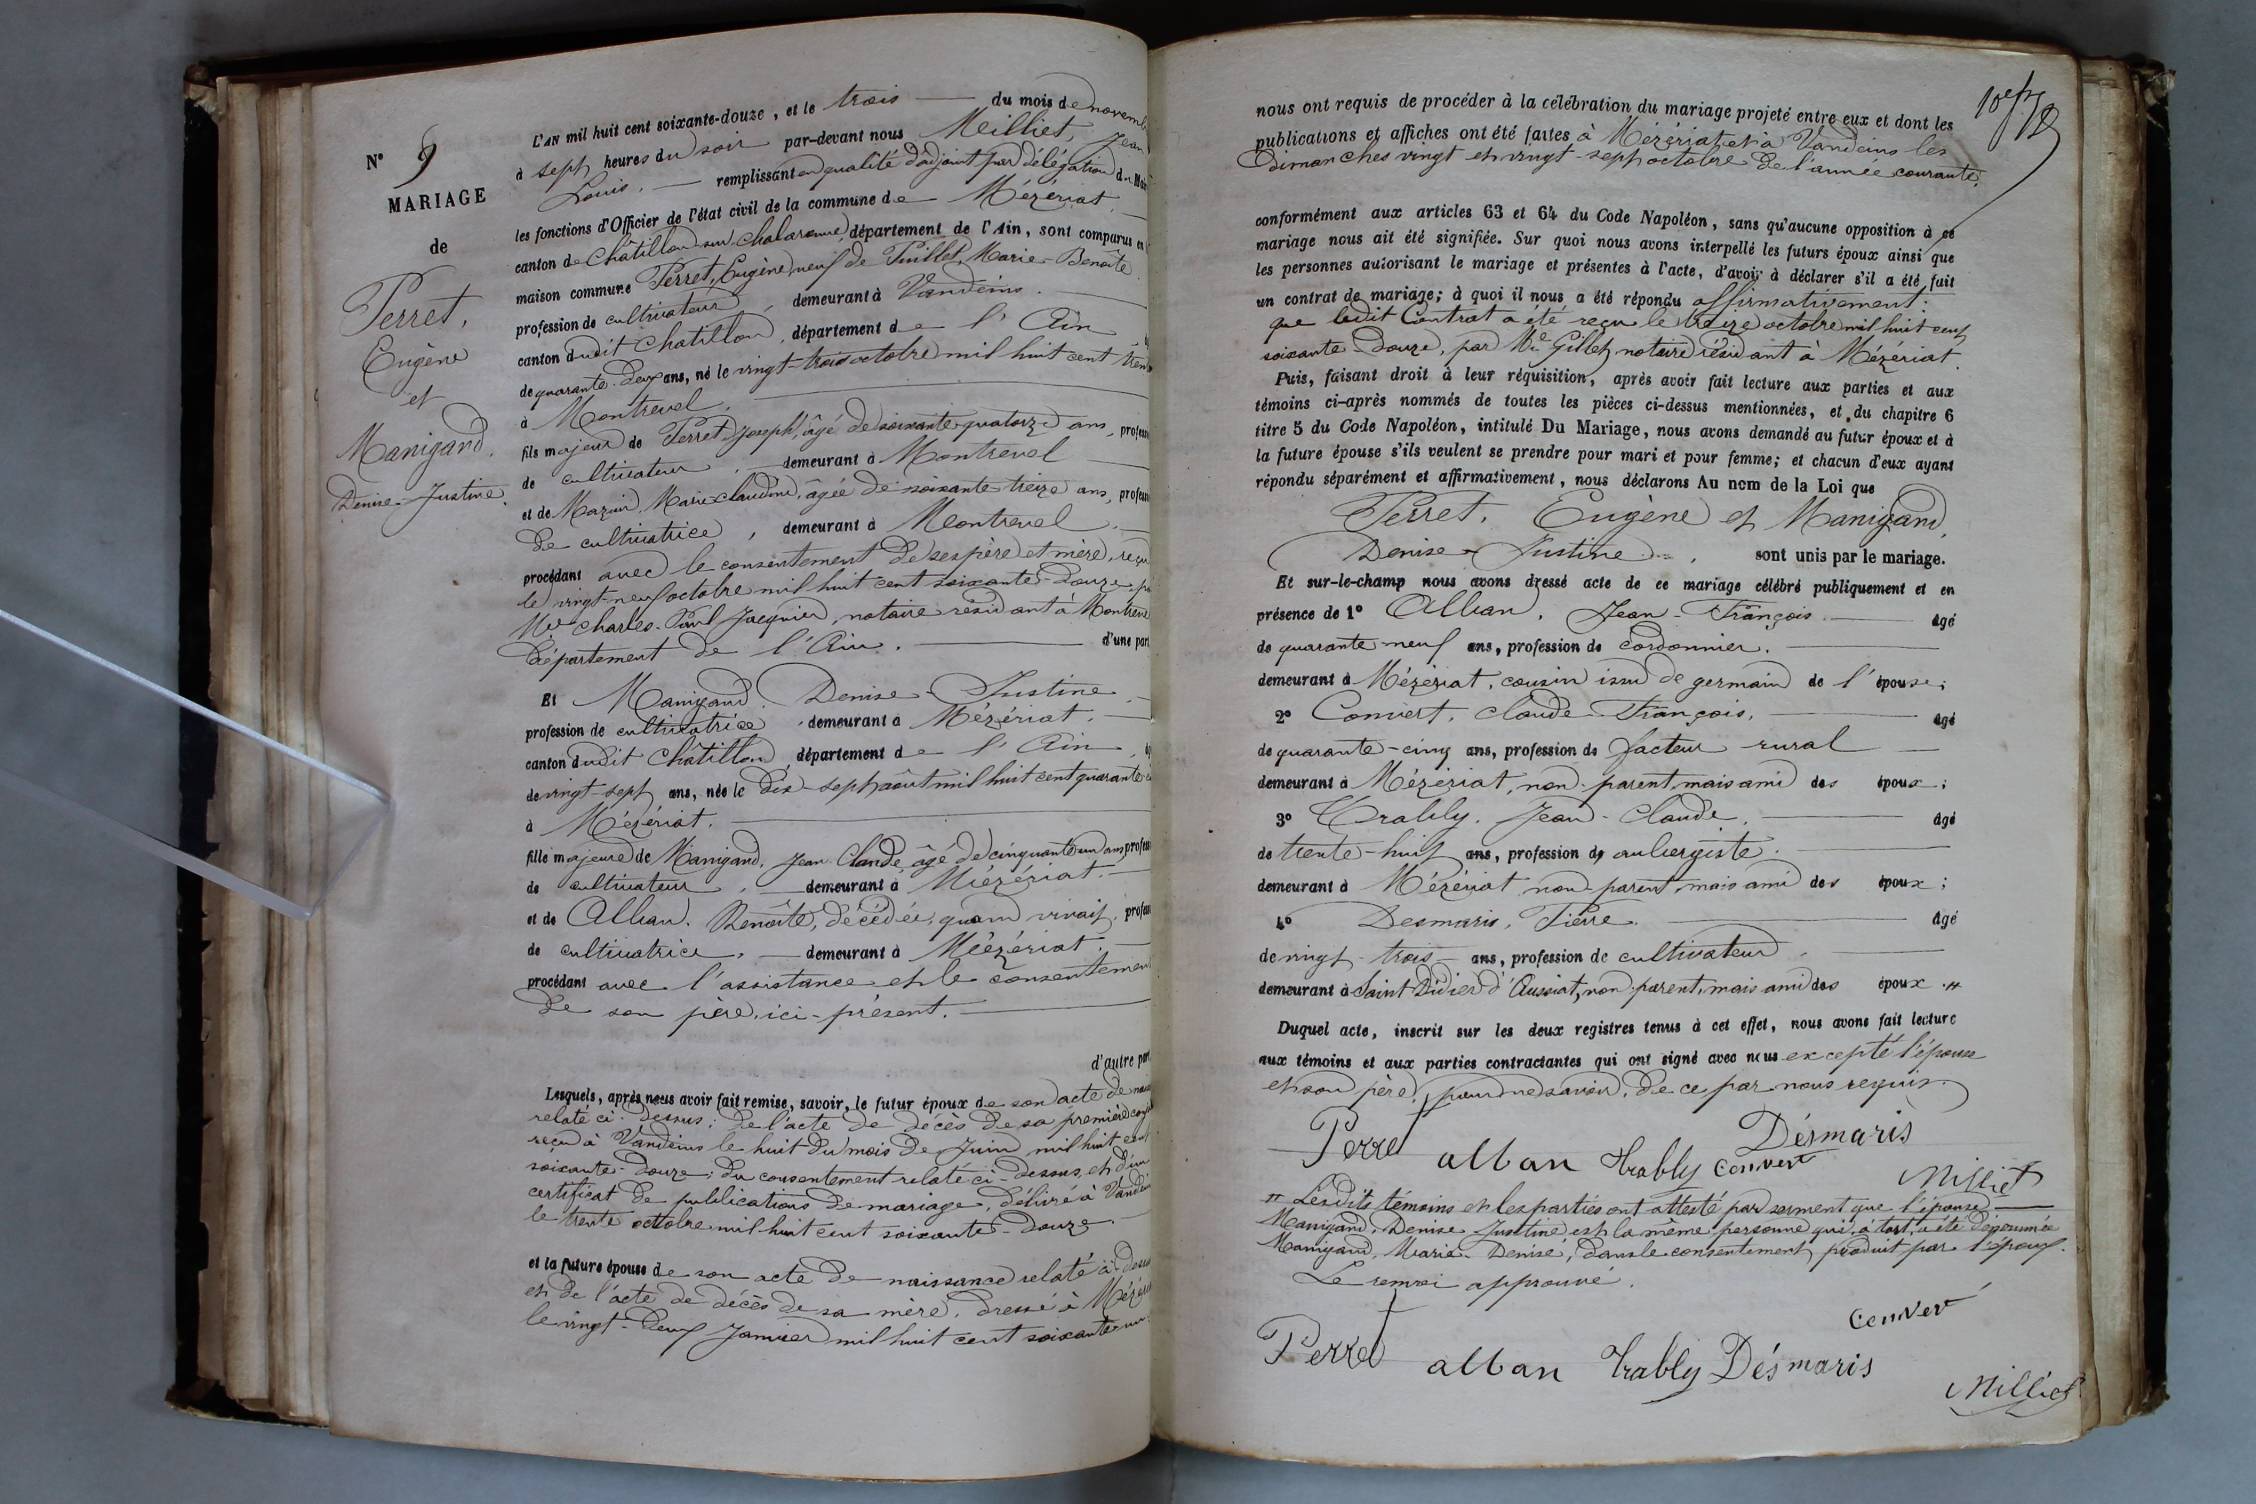 N° 9
MARIAGE
de
Perret,
Eugène
et
Manigand,
Denise-Justine.
L'AN mil huit cent soixante-douze, et le trois du mois de novemb
à sept heures du soir par-devant nous Meilliet, Jean
Louis, remplissant en qualité d'adjoint par délégation du Mai
les fonctions d'Officier de l'état civil de la commune de Mézériat,
canton de Châtillon-sur-Chalaronne, département de l'Ain, sont comparus en
maison commune Perret, Eugène, veuf de Puillet, Marie-Benoîte
profession de cultivateur, demeurant à Vandeins.
canton dudit Chatillon, département de l'Ain
de quarante-deux ans, né le vingt-trois octobre mil huit cent tren
à Montrevel.
fils majeur de Perret Joseph, âgé de soixante-quatorze ans, profess
de cultivateur, demeurant à Montrevel
et de Mazuir, Marie-Claudine, âgée de soixante-treize ans, profess
de cultivatrice, demeurant à Montrevel.
procédant avec le consentement de ses père et mère, reçu
le vingt-neuf octobre mil huit cent soixante-douze, pa
Me Charles-Paul Jacquier, notaire résidant à Montreve
département de l'Ain. d'une part
Et Manigand, Denise-Justine
profession de cultivatrice demeurant à Mézériat.
canton dudit Châtillon, département de l'Ain,
de vingt-sept ans, née le dix-sept août mil huit cent quarante-c
à Mézériat.
fille majeure de Manigand, Jean Claude, âgé de cinquante-un ans, profess
de cultivateur, demeurant à Mézériat.
et de Alban, Benoîte, décédée, quand vivait, profess
de cultivatrice, demeurant à Mézériat.
procédant avec l'assistance et le consentemen
de son père, ici-présent.
d'autre part
Lesquels, après nous avoir fait remise, savoir, le futur époux de son acte de nais
relaté ci-dessus; de l'acte de décès de sa première conj
reçu à Vandeins le huit du mois de Juin mil huit cent
soixante-douze; du consentement relaté ci-dessus, et d'un
certificat de publications de mariage, délivré à Vandein
le trente octobre mil huit cent soixante-douze.
et la future épouse de son acte de naissance relaté ci-dessus
et de l'acte de décès de sa mère, dressé à Mézéri
le vingt-deux Janvier mil huit cent soixante-un
nous ont requis de procéder à la célébration du mariage projeté entre eux et dont les
publications et affiches ont été faites à Mézériat et à Vandeins les
dimanches vingt et vingt-sept octobre de l'année courante.
conformément aux articles 63 et 64 du Code Napoléon, sans qu'aucune opposition à ce
mariage nous ait été signifiée. Sur quoi nous avons interpellé les futurs époux ainsi que
les personnes autorisant le mariage et présentes à l'acte, d'avoir à déclarer s'il a été fait
un contrat de mariage; à quoi il nous a été répondu affirmativement.
que ledit Contrat a été reçu le treize octobre mil huit cent
soixante-douze, par Me Gillet, notaire résidant à Mézériat.
Puis, faisant droit à leur réquisition, après avoir fait lecture aux parties et aux
témoins ci-après nommés de toutes les pièces ci-dessus mentionnées, et du chapitre 6
titre 5 du Code Napoléon, intitulé Du Mariage, nous avons demandé au futur époux et à
la future épouse s'ils veulent se prendre pour mari et pour femme; et chacun d'eux ayant
répondu séparément et affirmativement, nous déclarons Au nom de la Loi que
Perret, Eugène et Manigand,
Denise-Justine sont unis par le mariage.
Et sur-le-champ nous avons dressé acte de ce mariage célébré publiquement et en
présence de 1° Alban, Jean-François âgé
de quarante neuf ans, profession de cordonnier.
demeurant à Mézériat, cousin issu de germain de l'épouse;
2° Convert, Claude-François, âgé
de quarante-cinq ans, profession de facteur rural
demeurant à Mézériat, non-parent, mais ami des époux;
3° Trably, Jean-Claude, âgé
de trente-huit ans, profession de aubergiste.
demeurant à Mézériat, non-parent, mais ami des époux;
4° Desmaris, Pierre. âgé
de vingt-trois ans, profession de cultivateur,
demeurant à Saint Didier d'Aussiat, non-parent, mais ami des époux. //
Duquel acte, inscrit sur les deux registres tenus à cet effet, nous avons fait lecture
aux témoins et aux parties contractantes qui ont signé avec nous excepté l'épouse
et son père, pour ne savoir, de ce par nous requis.
Perret alban trably convert Désmaris
Milliet
// Lesdits témoins et les parties ont attesté par serment que l'épouse
Manigand, Denise-Justine est la même personne qui, à tort, a été dénommée
Manigand, Marie-Denise, dans le consentement produit par l'époux.
Le renvoi approuvé.
convert
Perret alban trably Désmaris
Milliet